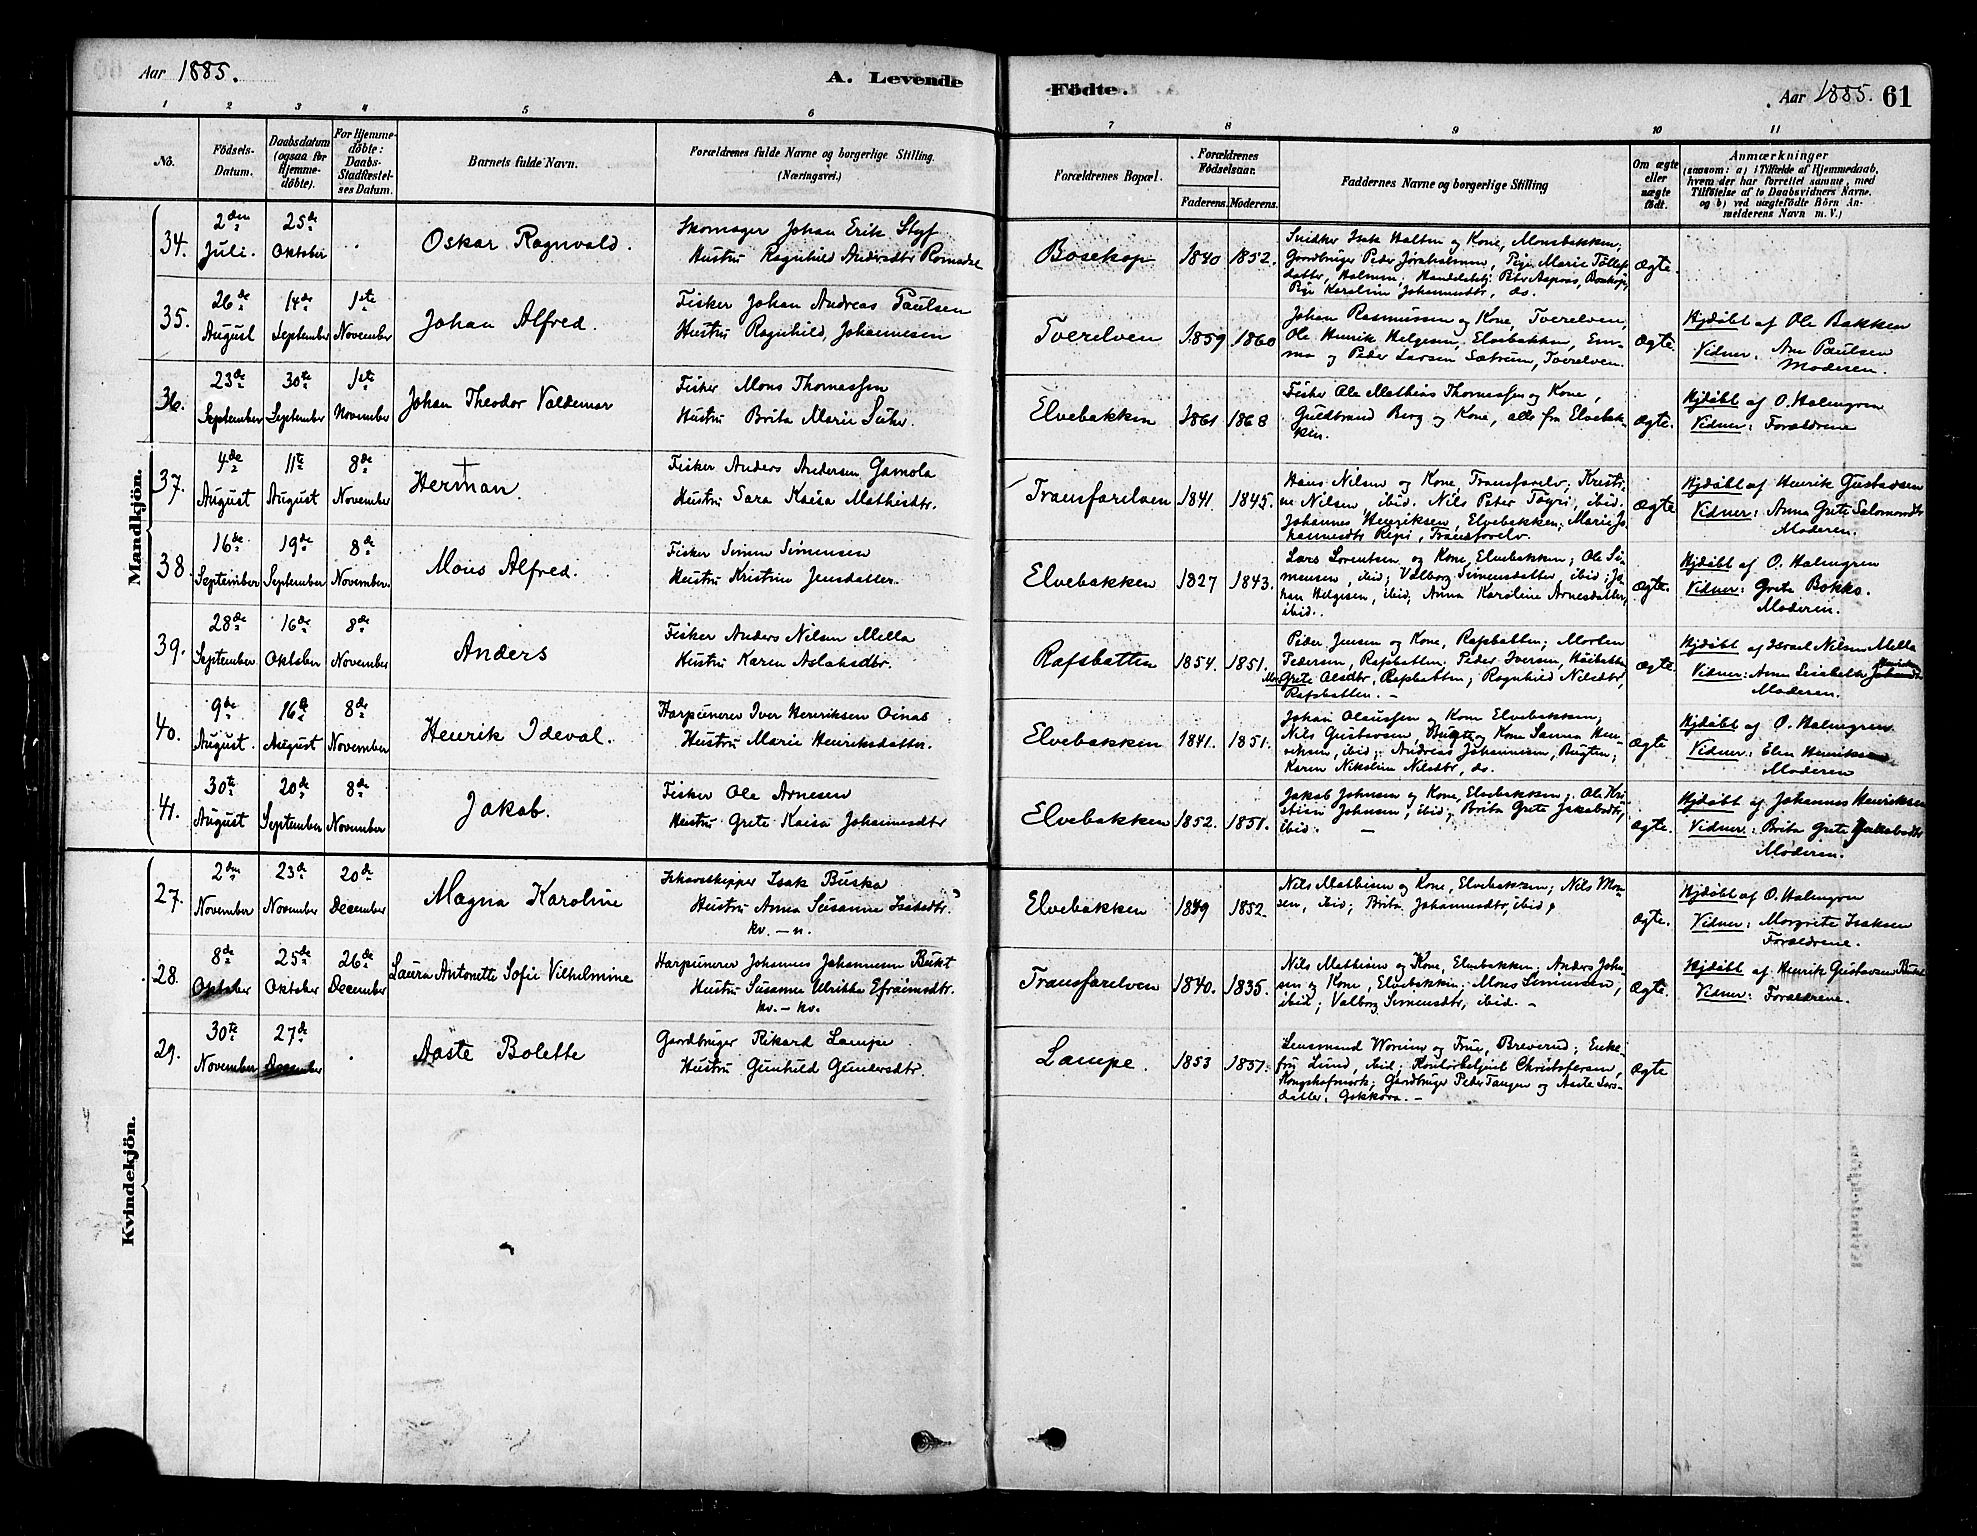 Aar 1885.
A. Levende
Födte.
Aar 1885. 61
1 2 3 4 5 6 7 8 9 10 11
No.
Födsels-
Datum.
Daabsdatum
(ogsaa for
Hjemme-
döbte).
For Hjemme-
döbte:
Daabs-
Stadfæstel-
ses Datum.
Barnets fulde Navn.
Forældrenes fulde Navne og borgerlige Stilling.
(Næringsvei.)
Forældrenes Bopæl.
Forældrenes
Födselsaar.
Faderens. Moderens.
Faddernes Navne og borgerlige Stilling
Om ægte
eller
uægte
födt.
Anmærkninger
(saasom: a) i Tilfælde af Hjemmedaab,
hvem der har forrettet samme, med
Tilföielse af to Daabsvidners Navne.
og b) ved uægtefödte Börn An-
melderens Navn m. V.)
Mandkjön.
34.
2den
Juli.
25de
Oktober
Oskar Ragnvald.
Skomager Johan Erik Styf
Hustru Ragnhild Andersdtr Romsdal
Bosekop
1840 1852.
Snidker Isak Halten og Kone, Monsbakken;
Gaardbruger Peder Jöraholmen, Pige Marie Tollefs
datter, Holmen; Handelsbetj. Peter Aspaas, Bosekop,
Pige Karoline Johannesdtr, ds.
Ægte.
35.
26de
August
14de
September
1ste
November
Johan Alfred.
Fisker Johan Andreas Paulsen
Hustru Ragnhild, Johannesen
Tverelven
1859 1860
Johan Rasmussen og Kone, Tverelven,
Ole Henrik Helgesen, Elvebakken, Em-
ma og Peder Larsen Sætrum, Tverelven.
Ægte.
Hjdöbt af Ole Bakken
Vidner: Ane Paulsen
Moderen.
36.
23de
September
30te
September
1ste
November
Johan Theodor Valdemar
Fisker Mons Thomassen
Hustru Brita Marie Suhr.
Elvebakken
1861 1868
Fisker Ole Mathias Thomassen og Kone,
Guldbrand Berg og Kone, alle fra Elvebak-
ken.
Ægte.
Hjdöbt af O. Halmgren
Vidner: Forældrene
37.
4de
August
11te
August
8de
November
Herman.
Fisker Anders Andersen Gamola
Hustru Sara Kaisa Mathisdtr.
Transfarelven
1841. 1845.
Hans Nilsen og Kone, Transfarelv, Kristi-
ne Nilsen, ibid. Nils Peter Töyri, ibid.
Johannes Henriksen, Elvebakken; Marie Jo-
hannesdtr Repi, Transfarelv.
Ægte.
Hjdöbt af Henrik Gustavsen
Vidner: Anna Grete Salomonsdtr
Moderen.
38.
16de
September
19de
September
8de
November.
Mons Alfred.
Fisker Simen Simensen
Hustru Kristine Jensdatter.
Elvebakken
1827 1843.
Lars Lorentsen og Kone, Elvebakken; Ole Si-
mensen, ibid; Valborg Simensdatter, ibid; Jo-
han Helgesen, ibid; Anna Karoline Arnesdatter,
ibid.
Ægte.
Hjdöbt af O. Halmgren
Vidner: Grete Bokko.
Moderen.
39.
28de
September
16de
Oktober
8de
November
Anders
Fisker Anders Nilsen Mella
Hustru Karen Aslaksdtr.
Rafsbotten
1854. 1851.
Peder Jensen og Kone, Rafsbotten; Morten
Pedersen, Rafsbotten. Peder Iversen, Häibakken
Grete Olsdtr, Rafsbotten; Ragnhild Nilsdtr,
Rafsbotten. -
Ægte.
Hjdöbt af Israel Nilsen Mella
Vidner: Anna Lisabeth
Moderen.
40.
9de
August.
16de
August
8de
November
Henrik Ideval.
Harpunerer Iver Henriksen Oinas
Hustru Marie Henriksdatter.
Elvebakken
1841. 1851.
Johan Olaussen og Kone Elvebakken,
Nils Gustavsen, Bugten og Kone Sanna Hen-
riksen, ibid; Andreas Johannesen, Bugten;
Karen Nikoline Nilsdtr, ds.
Ægte
Hjdöbt af O. Halmgren
Vidner: Elen Henriksen
Moderen
41.
30te
August
20de
September
8de
November
Jakob.
Fisker Ole Arnesen
Hustru Grete Kaisa Johannesdtr
Elvebakken
1852. 1851.
Jakob Johnsen og Kone, Elvebakken; Ole Kri-
stian Johnsen, ibid; Brita Grete Jakobsdtr,
ibid. -
Ægte.
Hjdöbt af Johannes Henriksen
Vidner: Brita Grete Jakobsdtr
Moderen.
Kvindekjön.
27.
2den
November
23de
November
20de
December
Magna Karoline
Ishavsskipper Isak Buska
Hustru Anna Susanne Isaksdtr.
kv. - n.
Elvebakken
1849 1852.
Nils Mathisen og Kone, Elvebakken; Nils Mon-
sen, ibid; Brita Johannesdtr, ibid,
Ægte.
Hjdöbt af O. Halmgren
Vidner: Margrete Isaksen
Forældrene.
28.
8de
Oktober
25de
Oktober
26de
December
Laura Antonette Sofie Vilhelmine
Harpunerer Johannes Johannesen Bukt
Hustru Susanne Ulrikka Efraimsdtr.
kv. - kv.
Transfarelven
1840. 1835.
Nils Mathisen og Kone, Elvebakken; Anders John-
sen og Kone, Elvebakken; Mons Simensen,
ibid; Valborg Simensdtr, ibid. -
Ægte.
Hjdöbt af Henrik Gustavsen Bukt
Vidner: Forældrene.
29.
30te
November
27de
December
Aaste Bolette
Gaardbruger Rikard Lampe
Hustru Gunhild Gundersdtr.
Lampe.
1853 1857.
Lensmand Worum og Frue, Breverud; Enke-
fru Lund, ibid; Kontorbetjent Christofersen,
Kongshofmark; Gaardbruger Peder Tangen og Aaste Lars-
datter, Gakkova. -
Ægte